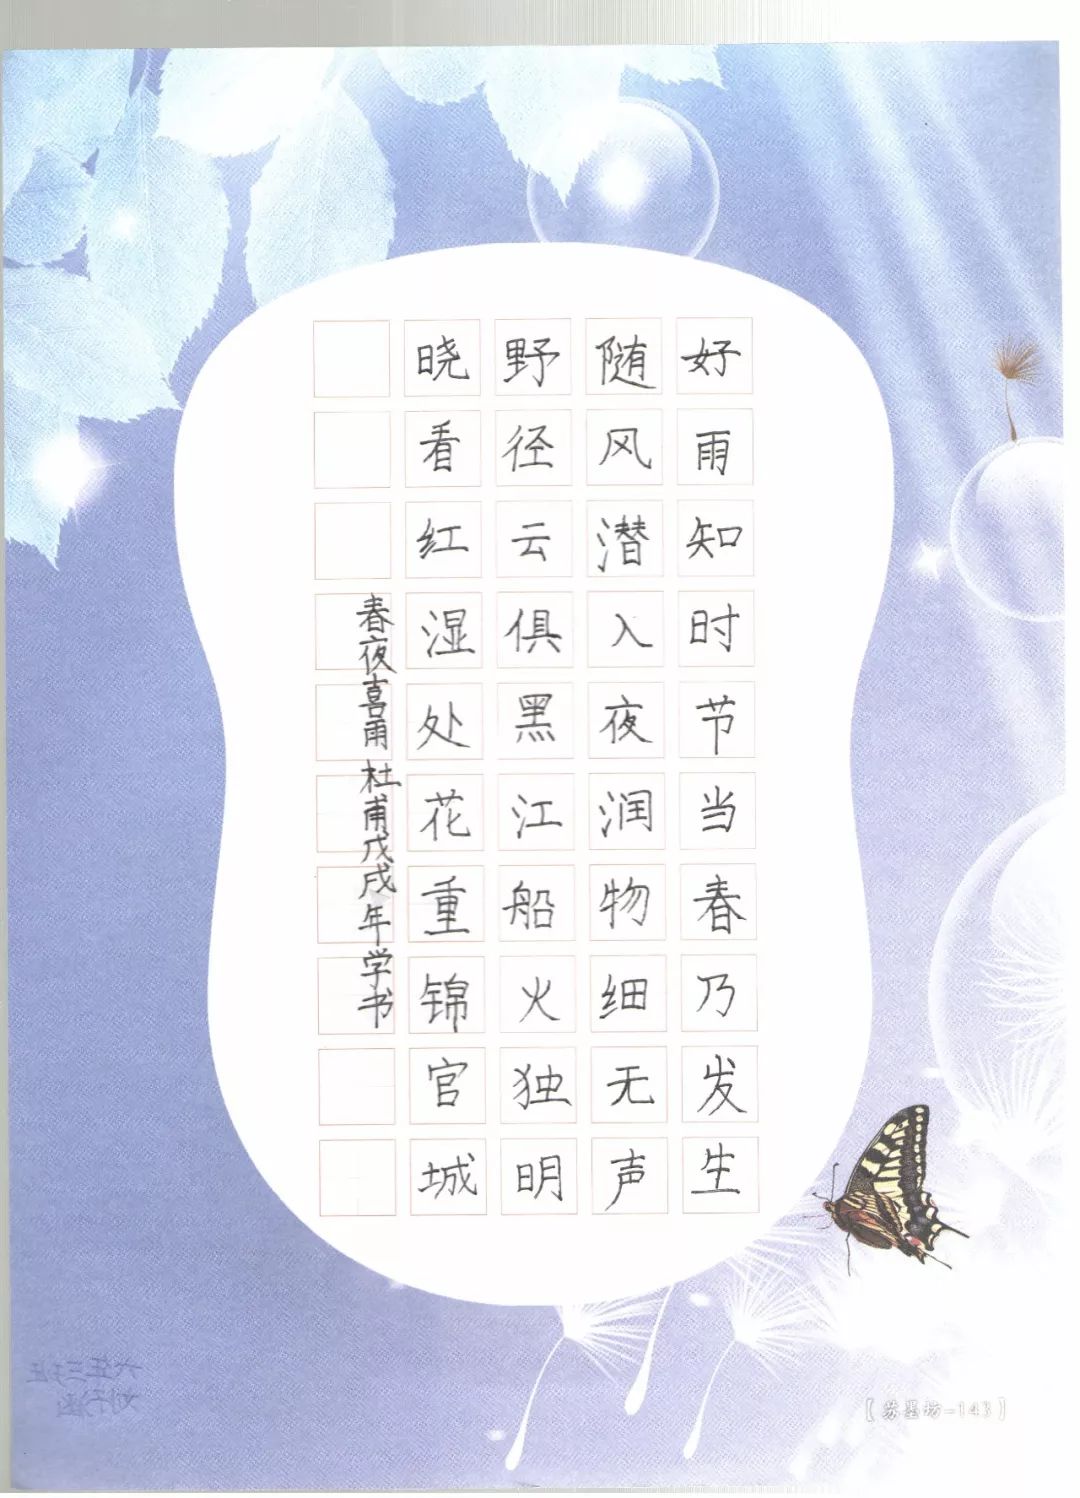 好雨知时节当春乃发生
随风潜入夜润物细无声
野径云俱黑江船火独明
晓看红湿处花重锦官城
春夜喜雨 杜甫戊戌年学书
六年三班
刘子涵
【苏墨坊-143】